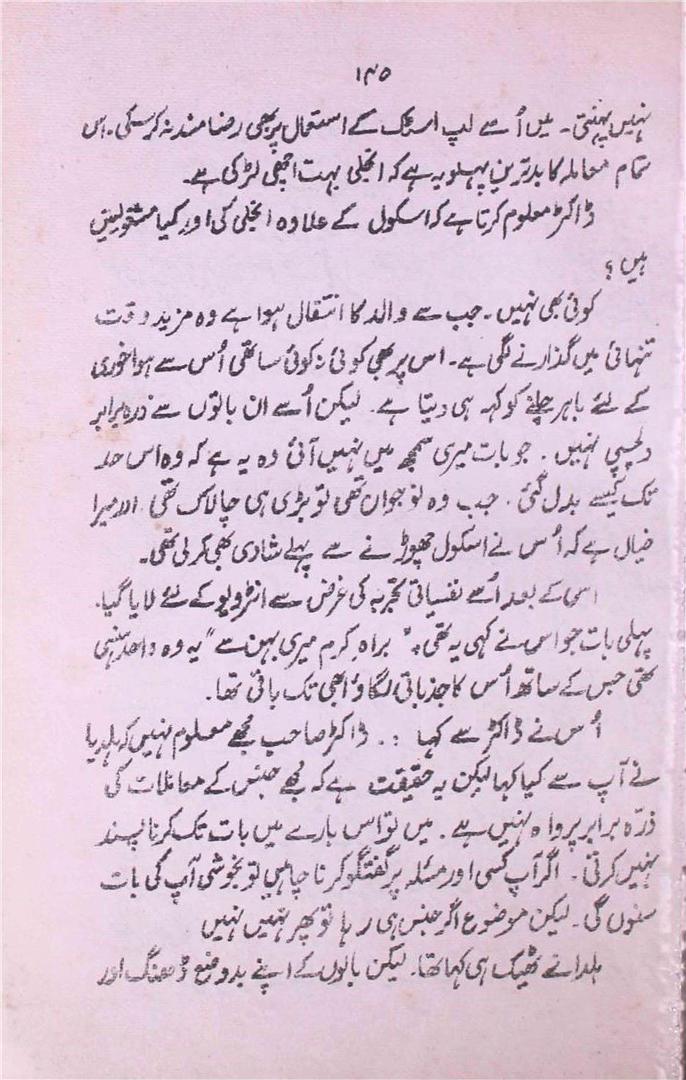 ۱۴۵
نہیں پہنتی۔ میں اُسے لپ اسٹک کے استعمال پر بھی رضا مند نہ کر سکی۔ اس
تمام معاملہ کا بدترین پہلو یہ ہے کہ انجلی بہت اچھی لڑکی ہے۔
ڈاکٹر معلوم کرتا ہے کہ اسکول کے علاوہ انجلی کی اور کیا مشغولیتیں
ہیں؟
کوئی بھی نہیں۔ جب سے والد کا انتقال ہوا ہے وہ مزید وقت
تنہائی میں گذارنے لگی ہے۔ اس پر بھی کوئی نہ کوئی ساتھی اُس سے ہوا خوری
کے لئے باہر چلنے کو کہہ ہی دیتا ہے۔ لیکن اُسے ان باتوں سے ذرہ برابر
دلچسپی نہیں۔ جو بات میری سمجھ میں نہیں آئی وہ یہ ہے کہ وہ اس حد
تک کیسے بدل گئی۔ جب وہ نوجوان تھی تو بڑی ہی چالاک تھی اور میرا
خیال ہے کہ اُس نے اسکول چھوڑنے سے پہلے شادی بھی کر لی تھی۔
اسی کے بعد اُسے نفسیاتی تجزیہ کی غرض سے انٹرویو کے لئے لایا گیا۔
پہلی بات جو اس نے کہی یہ تھی۔ "براہ کرم میری بہن سے" یہ وہ واحد ہستی
تھی جس کے ساتھ اُس کا جذباتی لگاؤ ابھی تک باقی تھا۔
اُس نے ڈاکٹر سے کہا :۔ ڈاکٹر صاحب مجھے معلوم نہیں کہ ہلدا
نے آپ سے کیا کہا لیکن یہ حقیقت ہے کہ مجھے جنس کے معاملات کی
ذرّہ برابر پرواہ نہیں ہے۔ میں تو اس بارے میں بات تک کرنا پسند
نہیں کرتی۔ اگر آپ کسی اور مسئلہ پر گفتگو کرنا چاہیں تو بخوشی آپ کی بات
سنوں گی۔ لیکن موضوع اگر جنس ہی رہا تو پھر نہیں نہیں
ہلدا نے ٹھیک ہی کہا تھا۔ لیکن بالوں کے اپنے بدوضع ڈھنگ اور